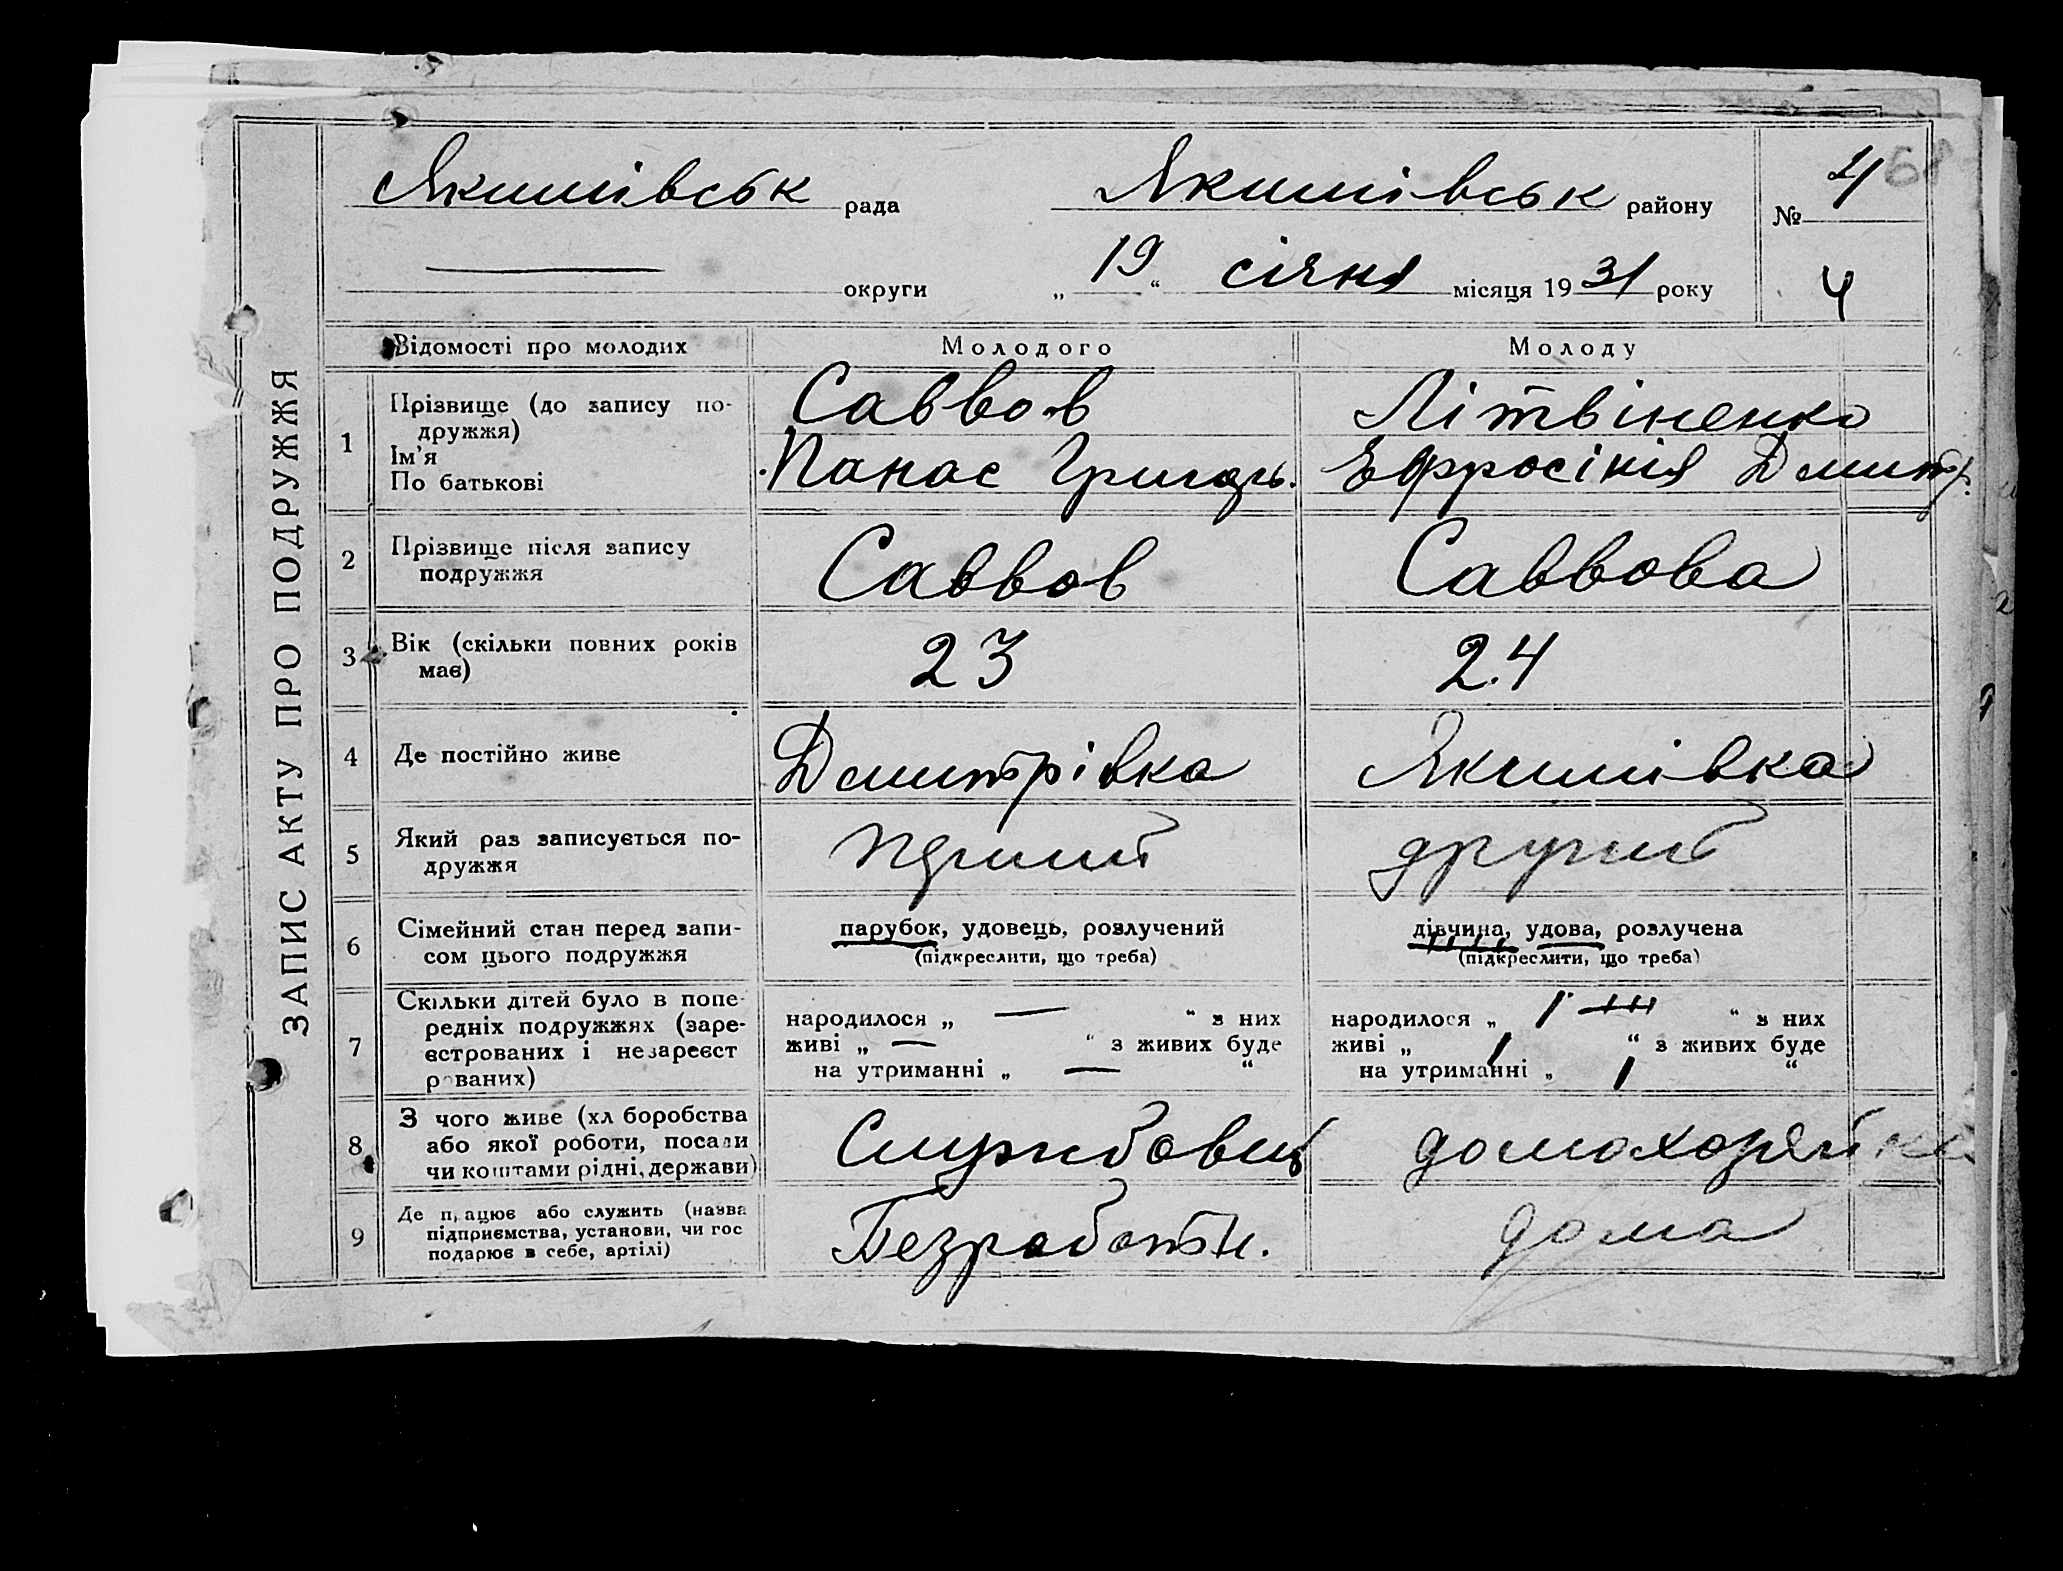 ЗАПИС АКТУ ПРО ПОДРУЖЖЯ
Якимівськ рада Якимівськ району № 4 68
округи „ 19 “ січня місяця 1931 року 4
Відомості про молодих Молодого Молоду
1 Прізвище (до запису по-
дружжя) Саввов Літвіненко
Ім'я
По батькові Панас Григорь. Ефросінія Дмитр.
2 Прізвище після запису
подружжя Саввов Саввова
3 Вік (скільки повних років
має) 23 24
4 Де постійно живе Дмитрівка Якимівка
5 Який раз записується по-
дружжя перший другий
6 Сімейний стан перед запи-
сом цього подружжя
парубок, удовець, розлучений
(підкреслити, що треба)
дівчина, удова, розлучена
(підкреслити, що треба)
7 Скільки дітей було в попе-
редніх подружжях (заре-
єстрованих і незареєст
рованих)
народилося „ — “ з них
живі „ — “ з живих буде
на утриманні „ — “
народилося „ 1 “ з них
живі „ 1 “ з живих буде
на утриманні „ 1 “
8 З чого живе (хл боробства
або якої роботи, посади
чи коштами рідні, держави)
Службовиц домохозяйка
9 Де працює або служить (назва
підприємства, установи, чи гос
подарює в себе, артілі)
Безработн. дома